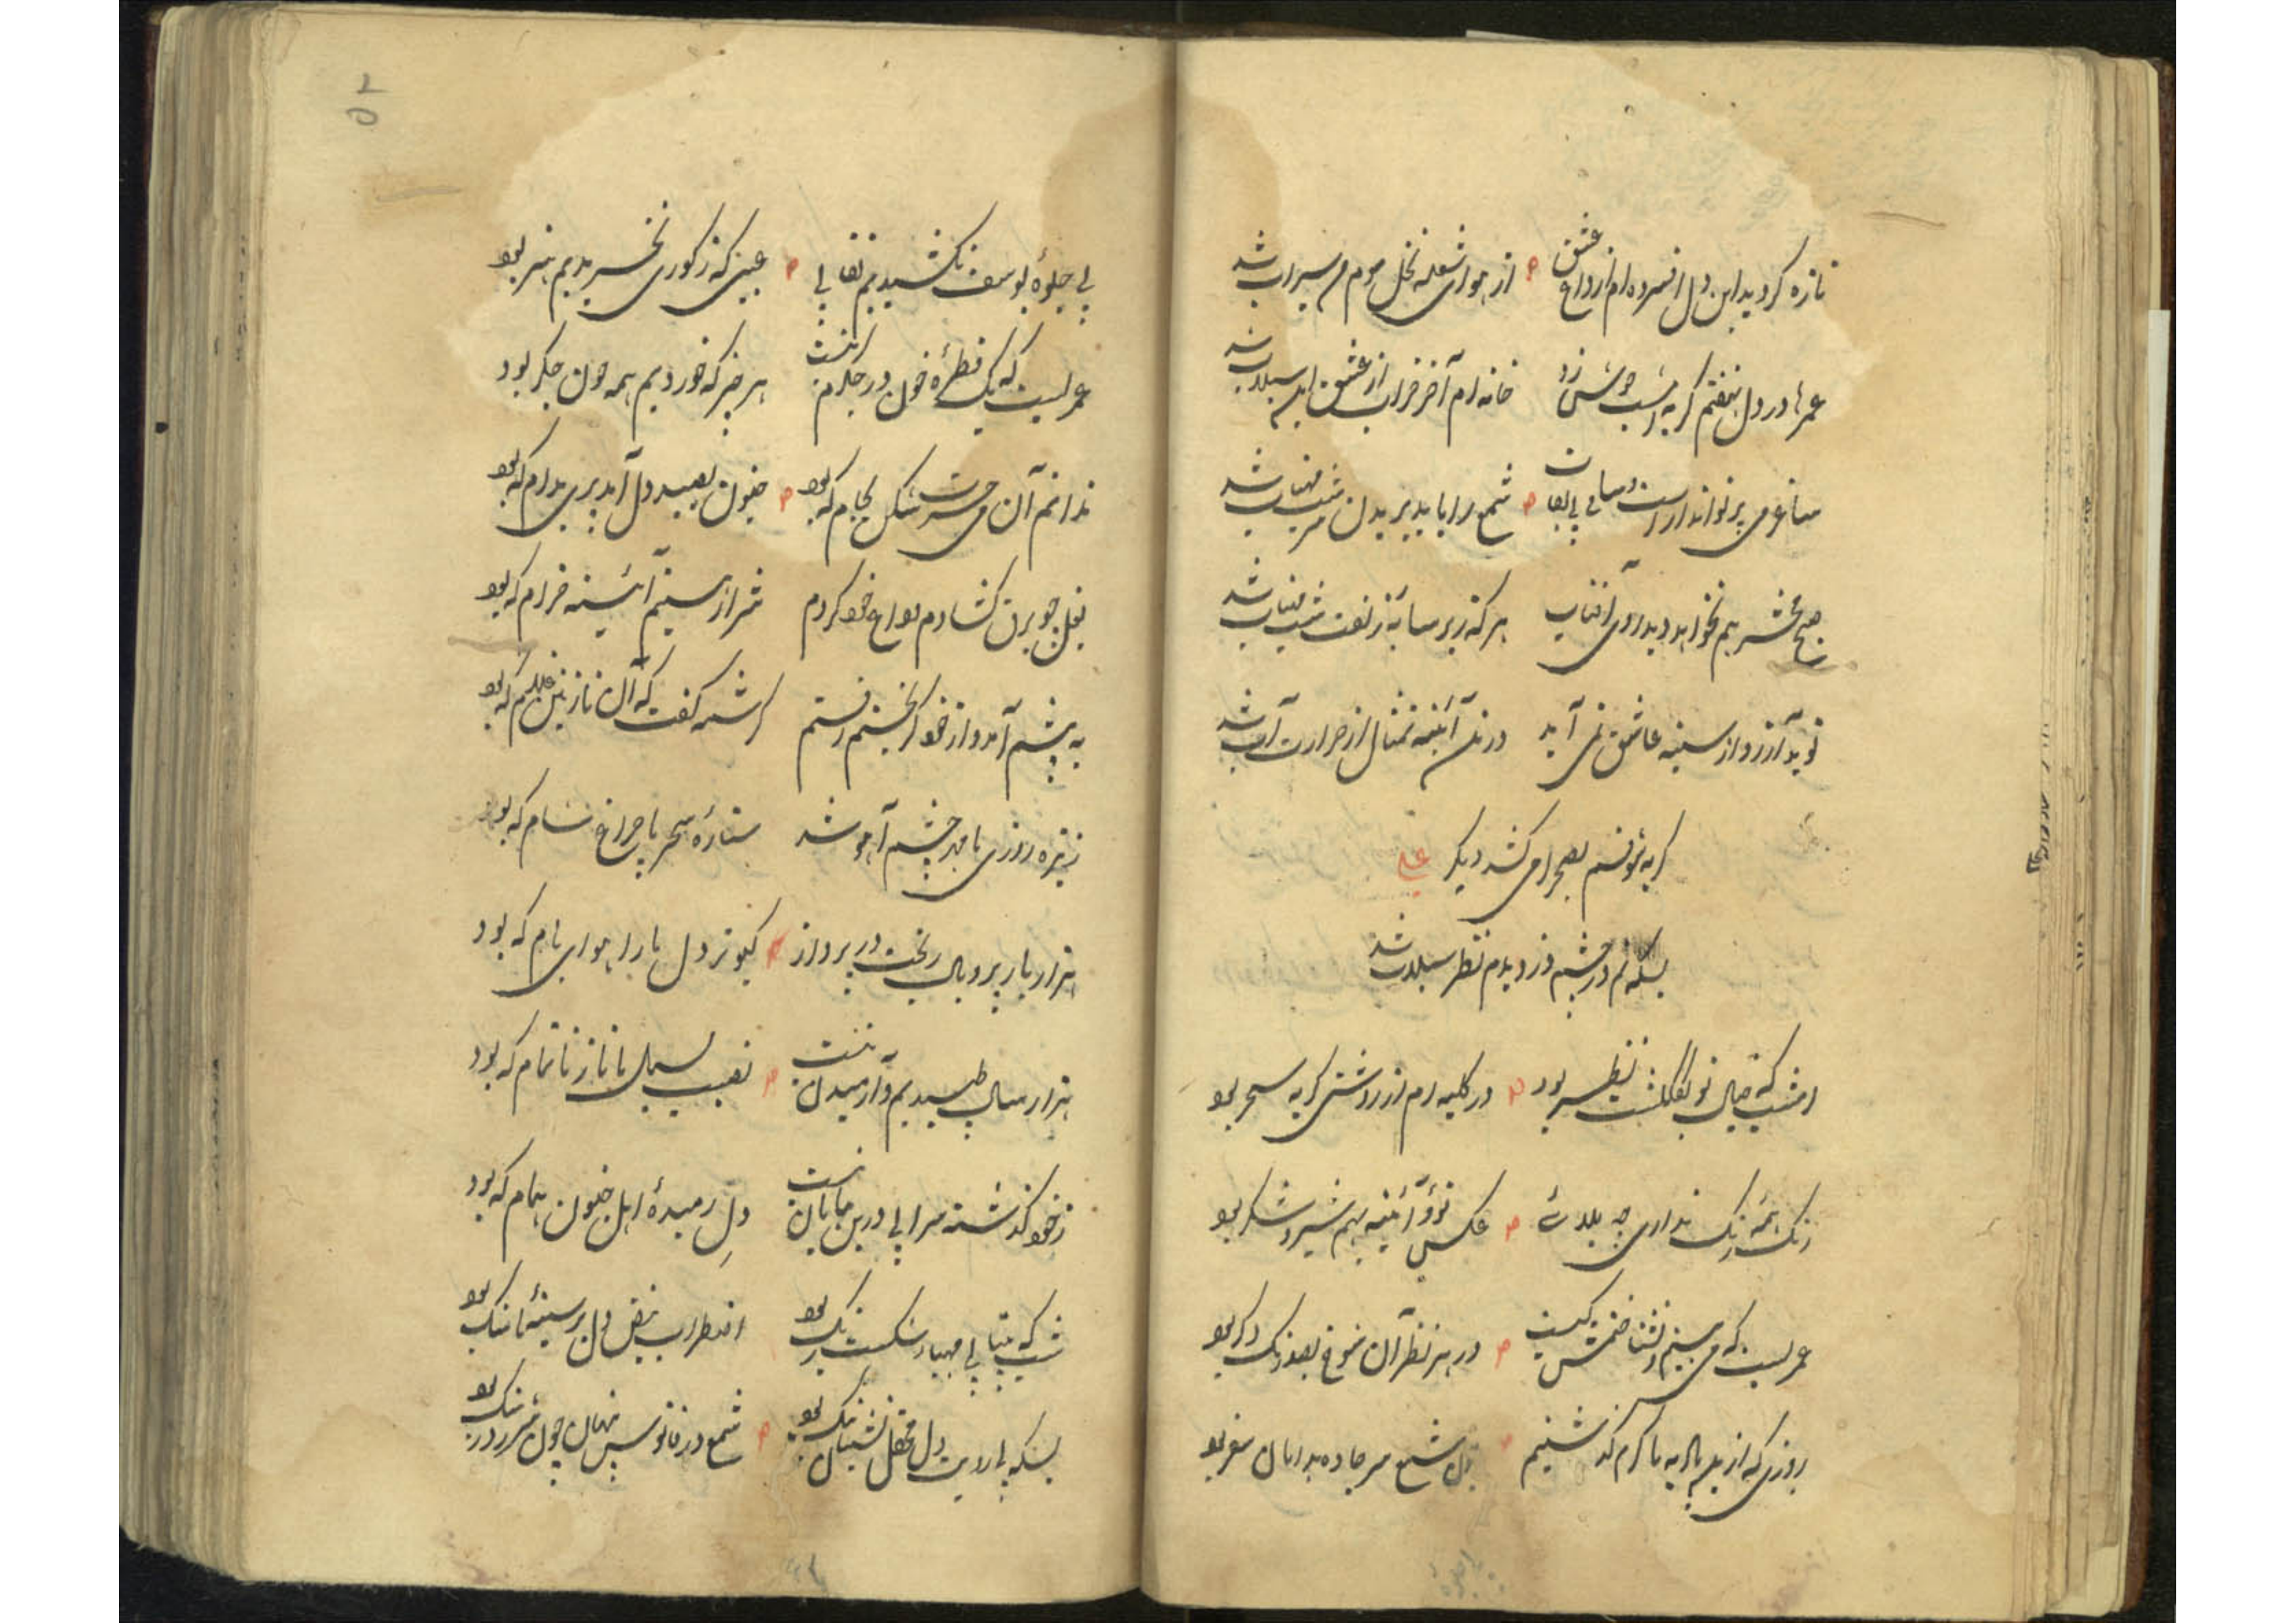 تازه کردید این دل افسرده ام از داغ عشق از هوای شعله نخل مومم سیراب شد
عمرها در دل نهفتم گریه امشب جوش زد خانه ام آخر خراب از عشق این سیلاب شد
ساغر می پرتو انداز است و ساقی بی نقاب شمع را باید بریدن سر شب مهتاب شد
صبح محشر هم نخواهد دید روی آفتاب هر که زیر سایه زلفت شب مهتاب شد
نوید آرزو از سینه عاشق نمی آید در آئینه تمثال از حرارت آب شد
گریه شوقم بصحرا می کشد دیگر علی
بسکه نم در چشم دزدیدم نظر سیلاب شد
امشب که خیال تو بگلگشت نظر بود در کلبه ام از روشنی گریه سحر بود
رنگت همه رنگ نداری چه بلائی عکس تو و آئینه بهم شیر و شکر بود
عمریست که می بینم و نشناختمش کیست در هر نظر آن شوخ بصد رنگ دگر بود
روزی که از بادیه ما گرم گذشتیم چون شمع سر جاده بدامان سفر بود
۵۲
بی جلوهٔ یوسف نکشیدیم نقابی عیبی که ز کوری نخریدیم هنر بود
عمریست که یک قطرهٔ خون در جگرم نیست هر چیز که خوردیم همه خون جگر بود
ندانم آن می حسرت شکن بجام که بود جنون بصید دل آمد پری بدام که بود
بغل چو برق گشادم وداع خود کردم شراز سینم آئینه خرام که بود
به پیشم آمد و از خود گریختم رفتم کرشمه گفت که آن نازنین غلام که بود
ز تیره روزی ما مهر چشم آهو شد ستارهٔ سحر ما چراغ شام که بود
هزار بار پر و بال ریخت در پرواز کبوتر دل ما را هوای بام که بود
هزار سال طپیدیم و آرمیدن نیست نصیب بسمل ما ناز ناتمام که بود
ز خود گذشته سرابی درین بیابان نیست دل رمیدهٔ اهل جنون بام که بود
شب که بیتابی مهیای شکست رنگ بود اضطراب نبض دل بر سینهٔ ما سنگ بود
بسکه بی رویت دل محفل نشینان تنگ بود شمع در فانوس پنهان چون شرر در سنگ بود